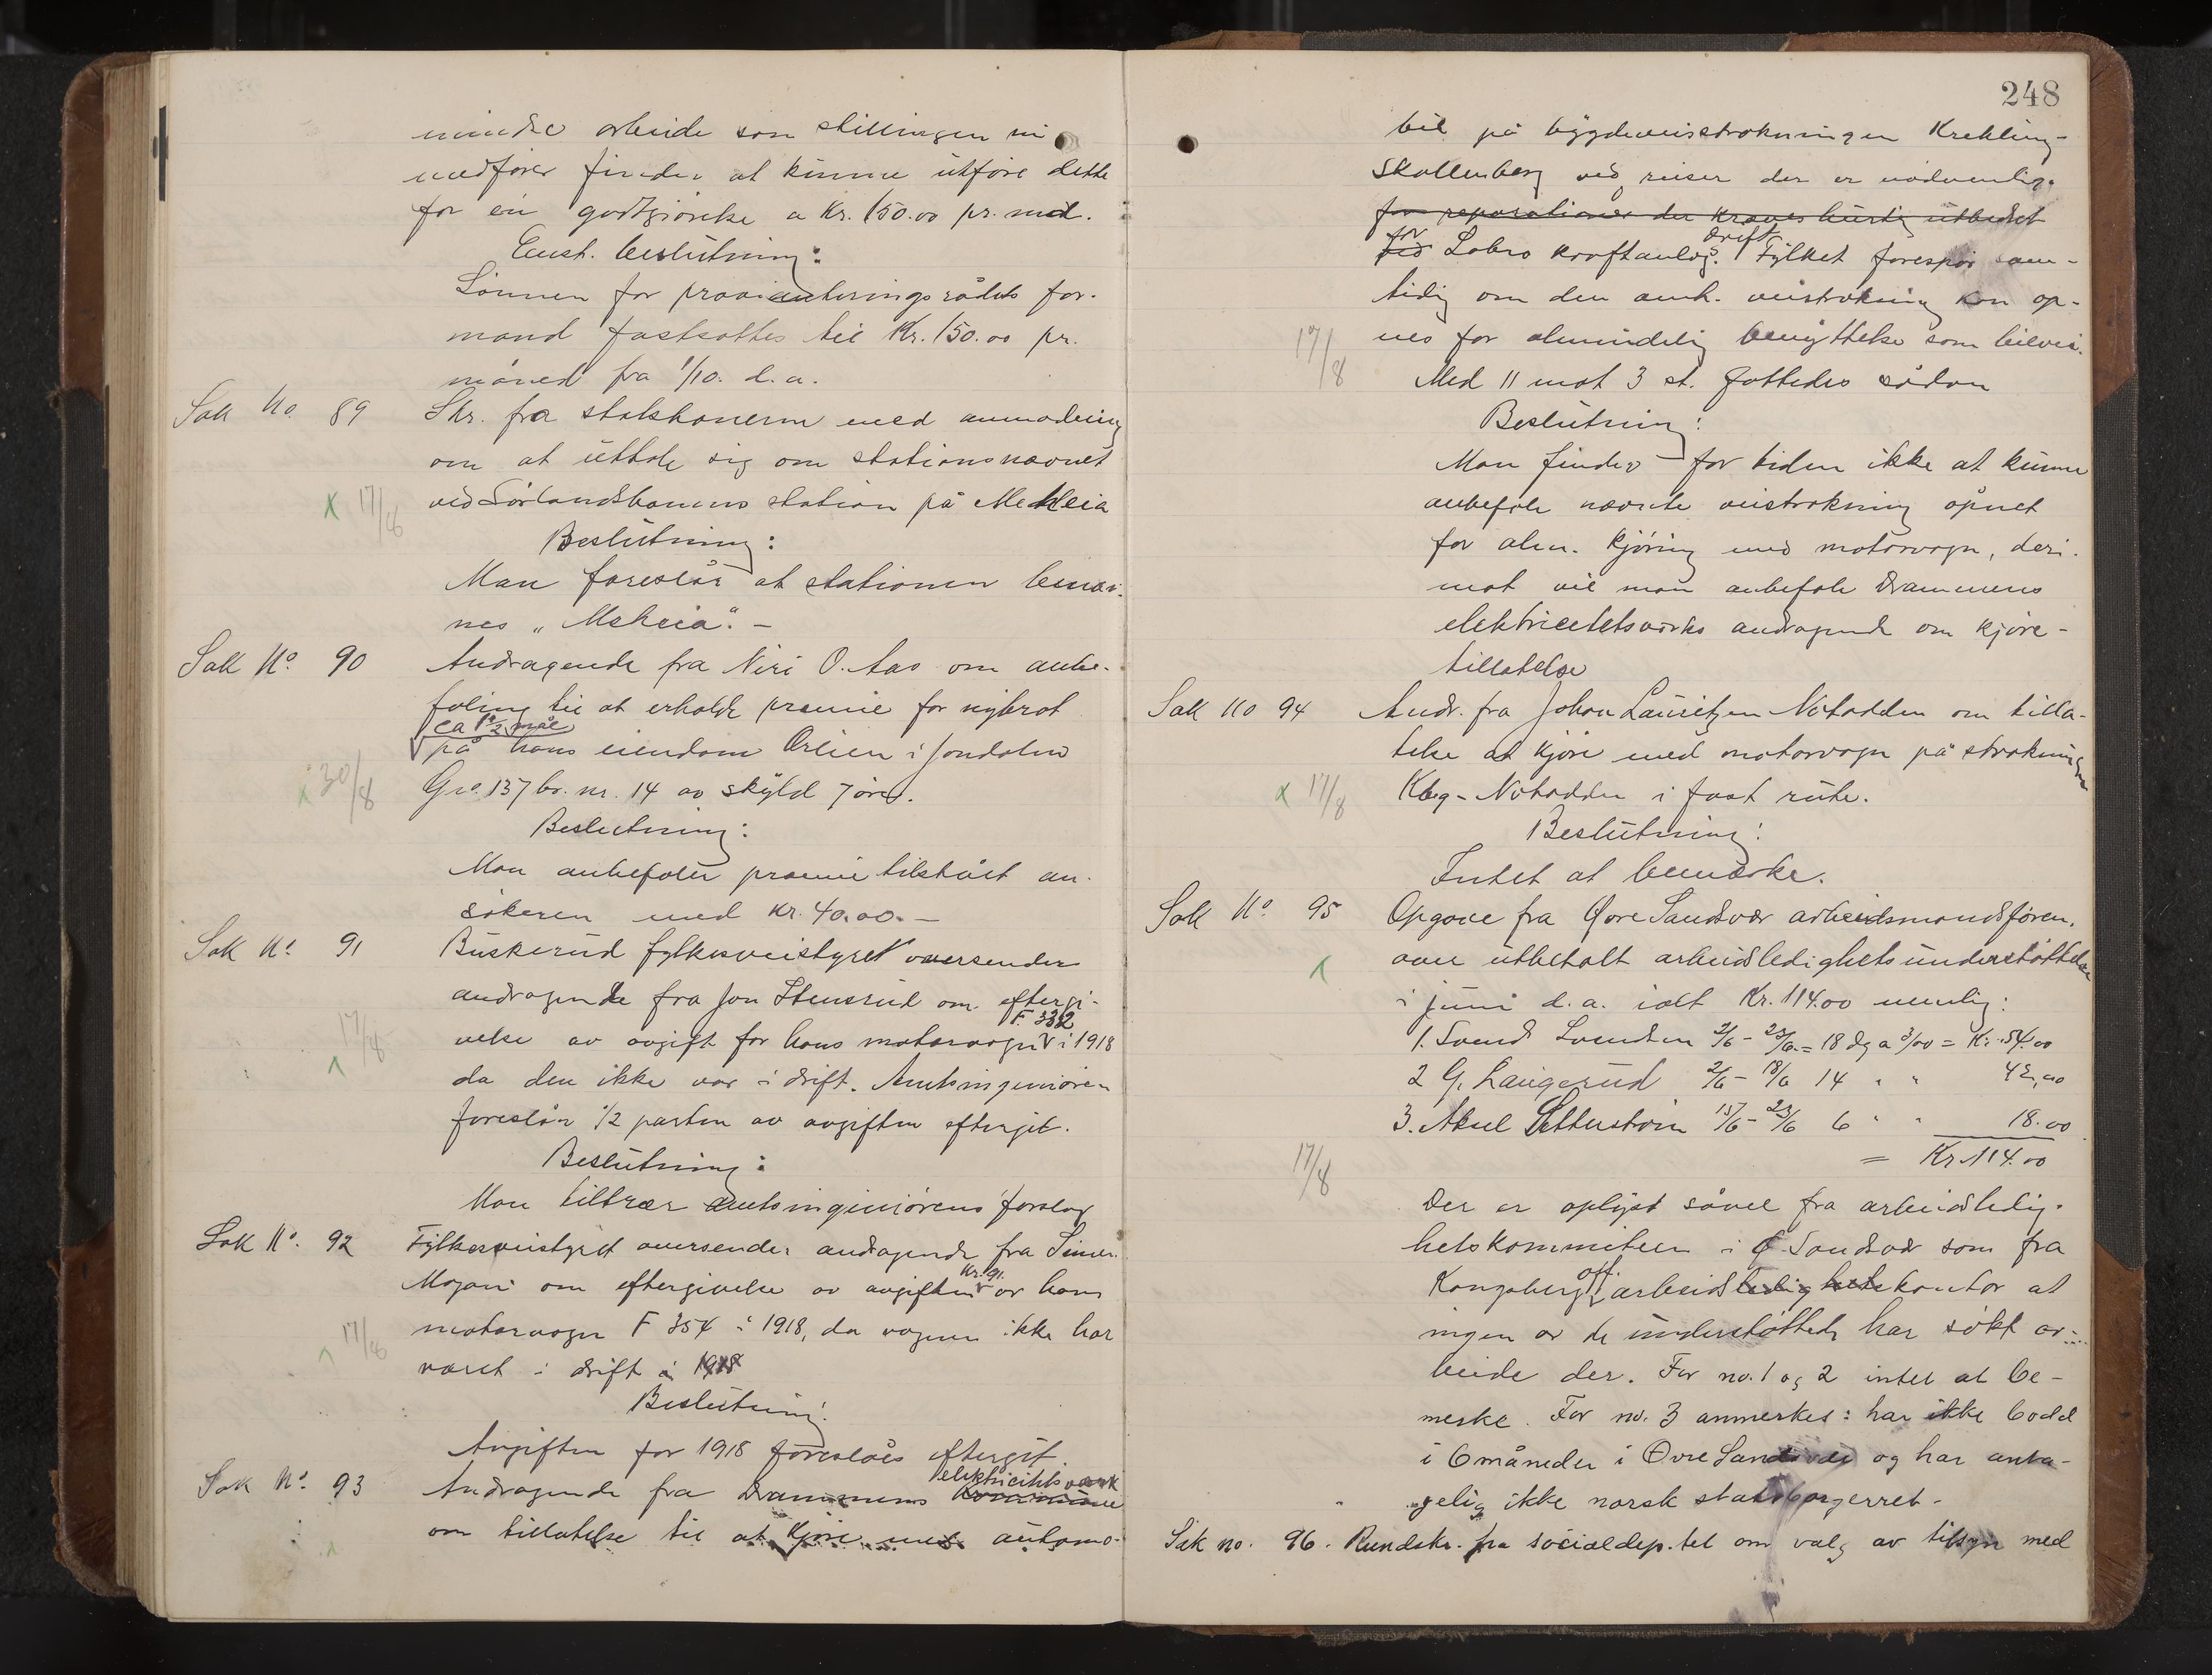 mindre arbeide som stillingen nu
medfører finder at kunne utføre dette
for en godtgjørelse a Kr. 150.00 pr. mnd.
Enst. beslutning:
Lønnen for provianteringsrådets for-
mand fastsattes til Kr. 150.00 pr.
måned fra 1/10. d.a.
Sak No. 89 Skr. fra statsbanerne med anmodning
om at uttale sig om stationsnavnet
ved Sørlandsbanens station på Meheia
x 17/8
Beslutning:
Man foreslår at stationen benæv-
nes „Meheia". -
Sak No. 90 Andragende fra Niri O. Aas om anbe-
faling til at erholde præmie for nybrot
ca 1 1/2 mål
på hans eiendom Orlien i Jondalen
x 30/8 Gno. 137 br. nr. 14 av skyld 7 øre.
Beslutning:
Man anbefaler præmie tilstått an-
søkeren med Kr. 40.00. -
Sak No. 91 Buskerud fylkesveistyret oversender
andragende fra Jon Stensrud om eftergi-
F. 332
velse av avgift for hans motorvogn i 1918
17/8
da den ikke var i drift. Amtsingeniøren
foreslår 1/2 parten av avgiften eftergit.
Beslutning:
Man tiltrær amtsingeniørens forslag
Sak No. 92 Fylkesveistyret oversender andragende fra Simen
Kr. 91.
Mojani om eftergivelse av avgiften av hans
motorvogn F 354 i 1918, da vognen ikke har
17/8
været i drift i 1918
Beslutning.
Avgiften for 1918 foreslåes eftergit.
elektricitetsværk
Sak No. 93 Andragende fra Drammens kommune
om tillatelse til at kjøre med automo-
248
bil på bygdeveistrækningen Krekling-
Skollenberg ved reiser der er nødvendige
for reparationer der kræves hurtig utbedret
for drift
ved Labro kraftanlæg. Fylket forespør sam-
tidig om den omh. veistrækning kan op-
nes for almindelig benyttelse som bilvei.
17/8
Med 11 mot 3 st. fattedes sådan
Beslutning:
Man finder for tiden ikke at kunne
anbefale nævnte veistrækning åpnet
for alm. kjøring med motorvogn, deri-
mot vil man anbefale Drammens
elektricitetsværks andragende om kjøre-
tillatelse
Sak No 94 Andr. fra Johan Lauritzen Notodden om tilla-
telse at kjøre med motorvogn på strækningen
x 17/8 Kbg - Notodden i fast rute.
Beslutning:
Intet at bemærke.
Sak No. 95 Opgave fra Øvre Sandsvær arbeidsmandsforen.
over utbetalt arbeidsledighetsunderstøttelse
i juni d.a. ialt Kr. 114.00 nemlig:
1. Svend Svendsen 2/6 - 23/6 = 18 dg a 3/00 = Kr. 54.00
2 G. Laugerud 2/6 - 18/6 14 " " 42,00
3. Aksel Setterstrøm 15/6 - 23/6 6 " " 18.00
= Kr. 114.00
17/8
Der er oplyst såvel fra arbeidsledig-
hetskommiteen i Ø. Sandsvær som fra
off.
Kongsberg arbeidsledighetskontor at
ingen av de understøttede har søkt ar-
beide der. For no. 1 og 2 intet at be-
merke. For no. 3 anmerkes: har ikke bodd
i 6 måneder i Øvre Sandsvær og har anta-
gelig ikke norsk statsborgerret -
Sak no. 96. Rundskr. fra socialdep.tet om valg av tilsyn med